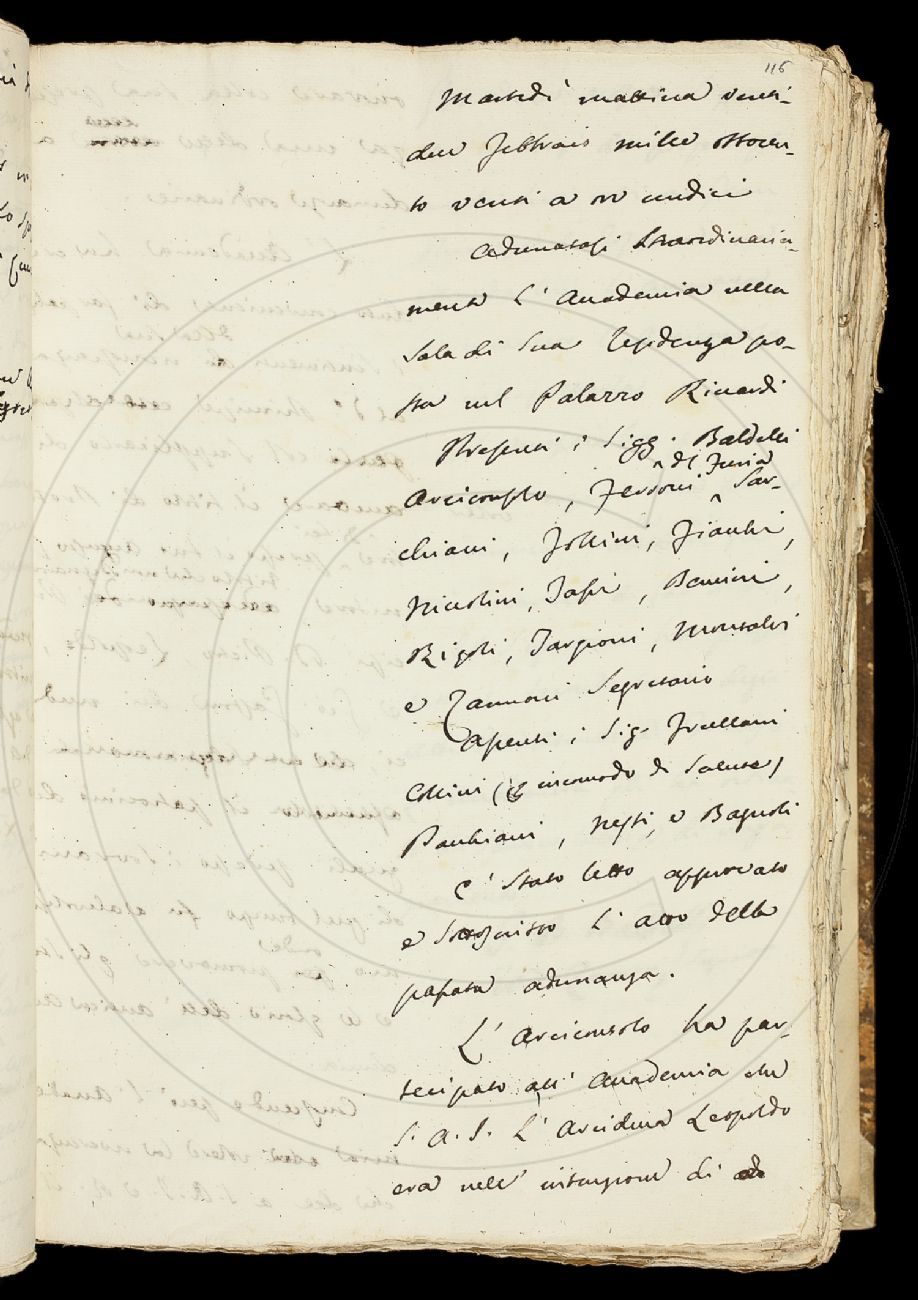 116
Martedì mattina venti-
due Febbraio mille ottocen-
to venti a ore undici
Adunatasi straordinaria-
mente l'Accademia nella
Sala di Sua residenza po-
sta nel Palazzo Ricardi
Presenti i Sigg. Baldelli
Arciconsolo, Ferroni, del Furia, Sar-
chiani, Follini, Fiacchi,
Niccolini, Tassi, Bencini,
Rigoli, Targioni, Montalvi
e Zannoni Segretario
Assenti i Sig. Frullani
Collini (per incomodo di Salute)
Pauchiani, Nesti, e Bagnoli
E' Stato letto approvato
e Sottoscritto l'atto della
passata adunanza.
L'Arciconsolo ha par-
tecipato all'Accademia che
S. A. I. L'Arciduca Leopoldo
era nell'intenzione di